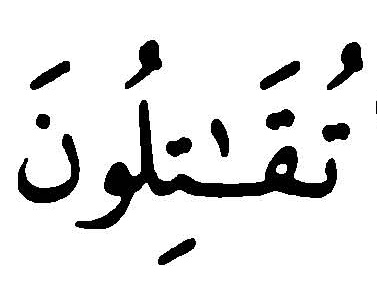 تُقَٰتِلُونَ